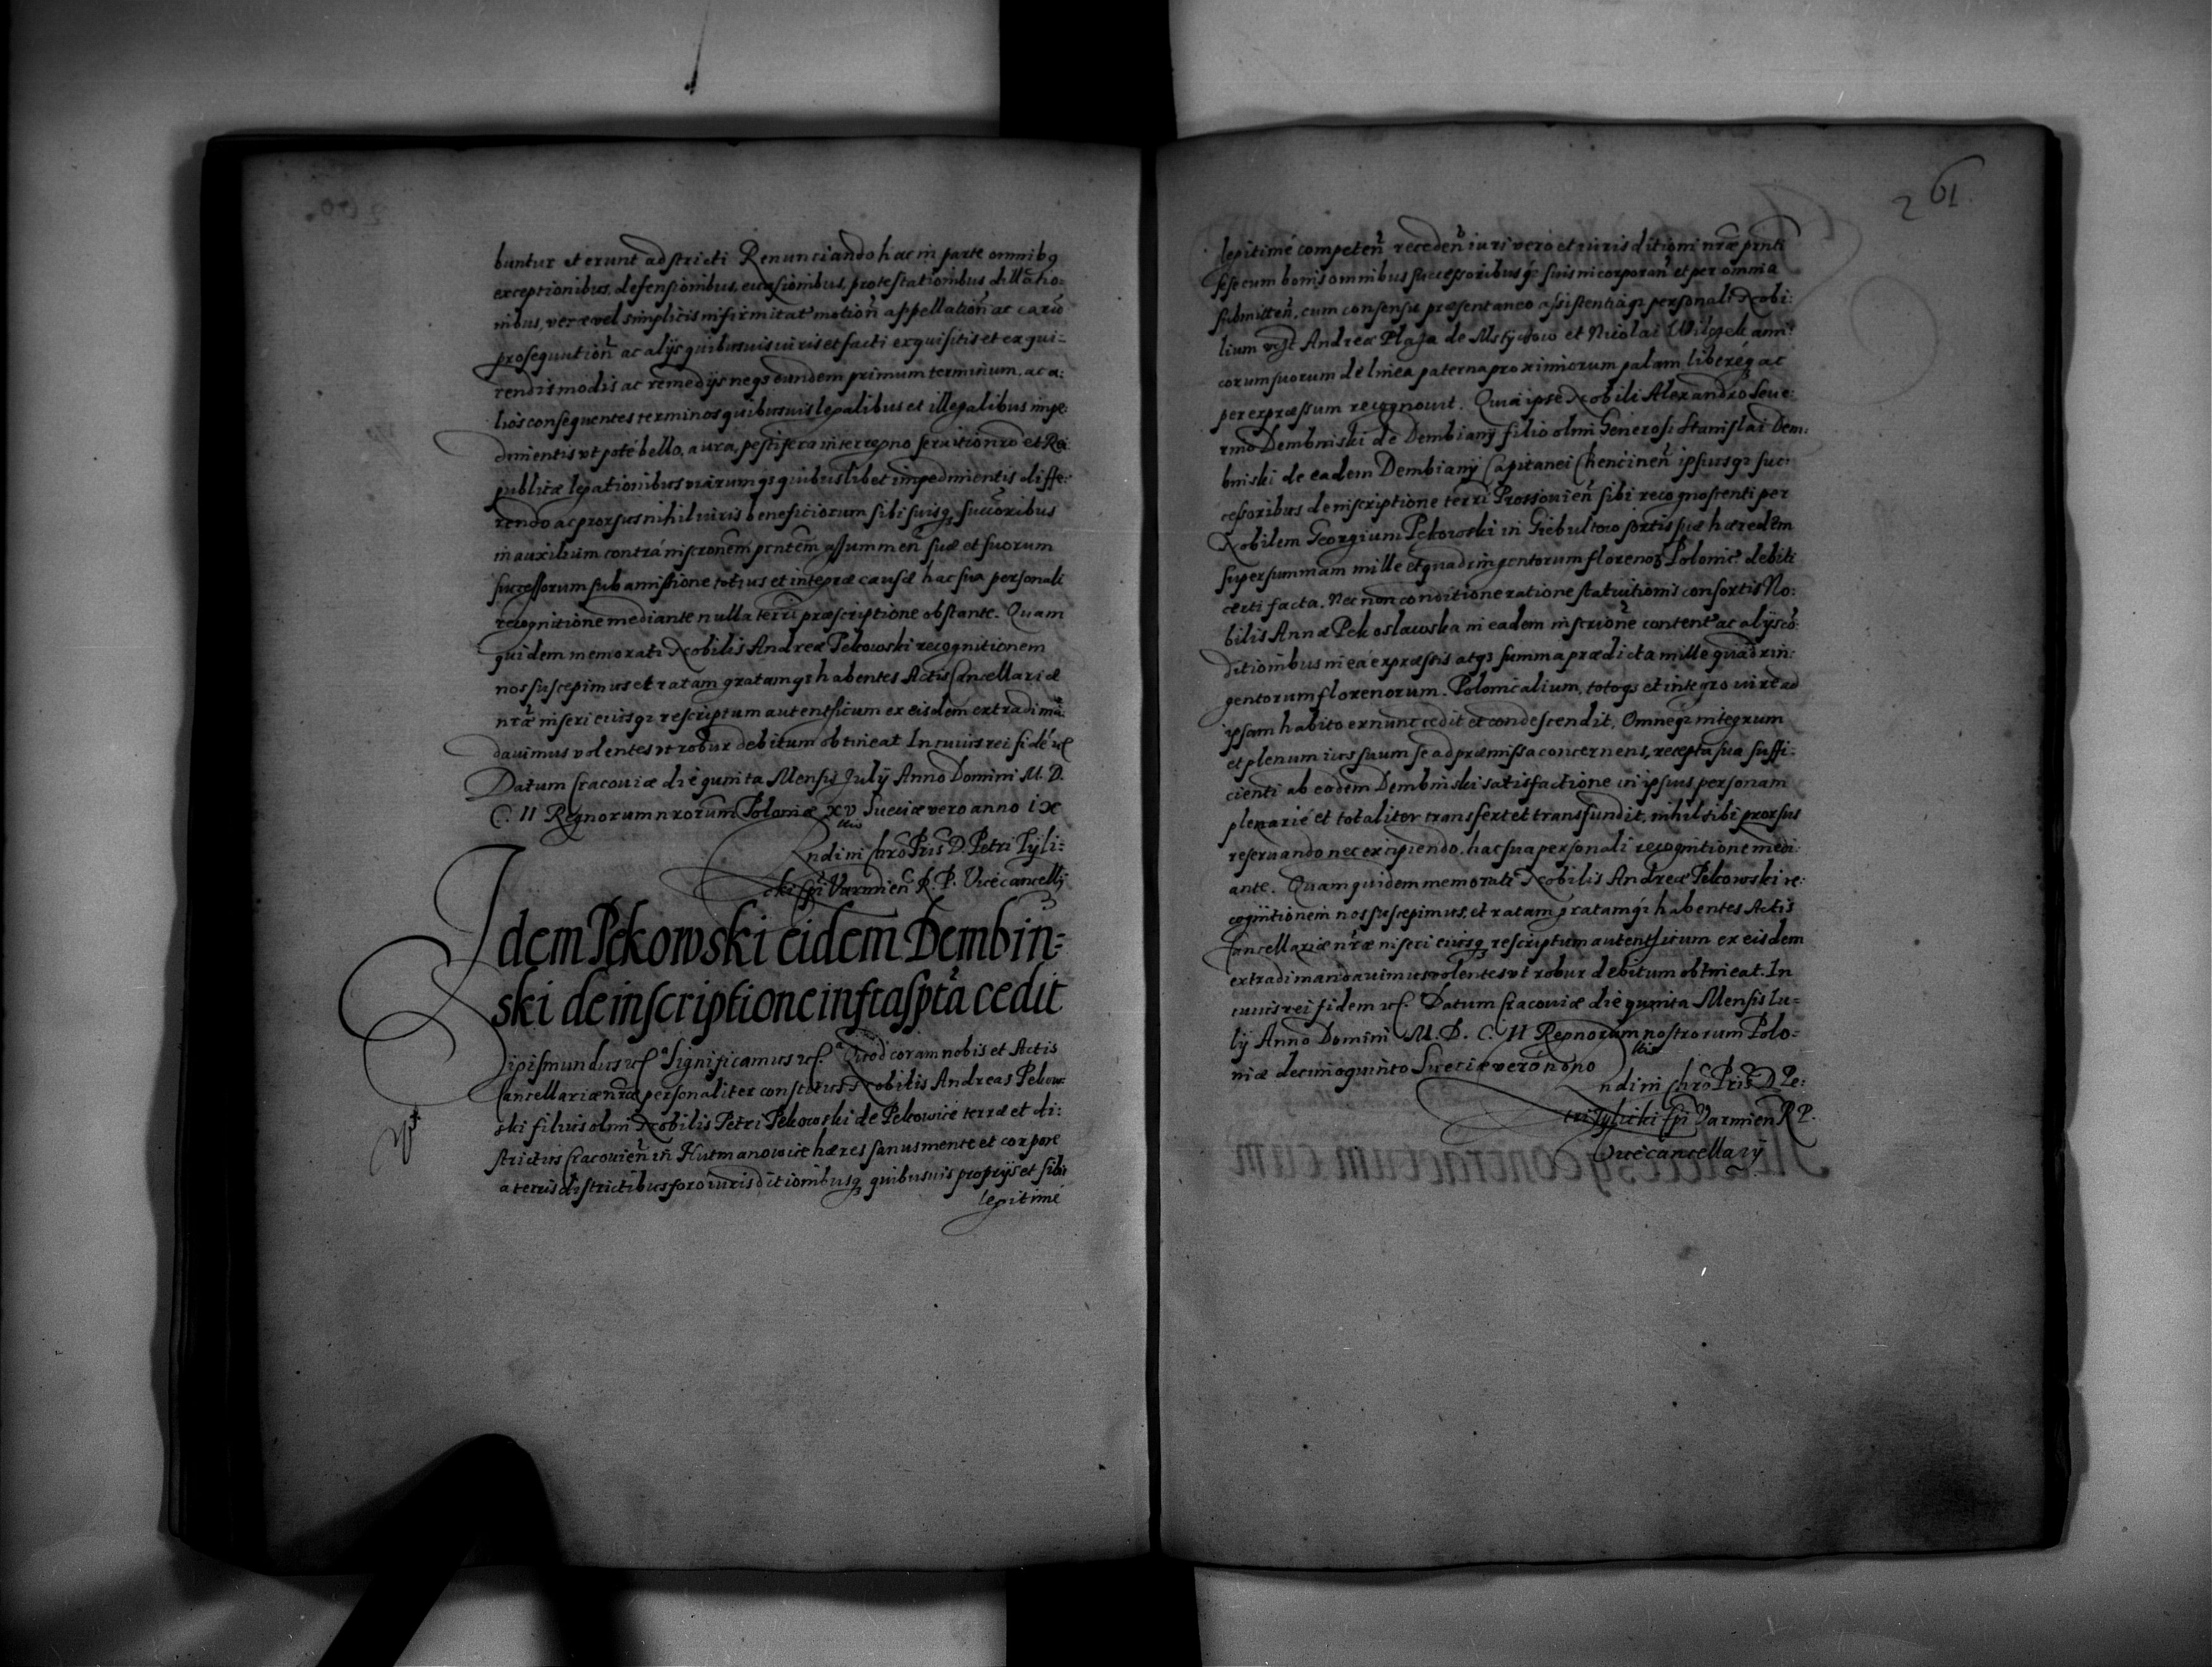 buntur et erunt adstricti Renunciando hac in parte omnibq
exceptionibus, defensionibus, euasionibus, protestationibus dillatio=
nibus, veræ vel simplicis infirmitat motioñ appellatioñ ac earū
prosequutioñ ac alijs quibusuis iuris et facti exquisitis et exqui=
rendis modis ac remedijs neqз eundem primum terminum, ac a:
lios consequentes terminos quibusuis legalibus et illegalibus impe:
dimentis vt poté bello, aura, pestifera interregno seruitio nro et Rei
publicæ legationibus viarumqз quibuslibet impedimentis diffe:
rendo ac prorsus nihil iuris beneficiorum sibi suisqз succoribus
in auxilium contrá inscronem pntem assummeñ suæ et suorum
successorum sub amissione totius et integræ causæ hac sua personali
recognitione mediante nulla terri præscriptione obstante. Quam
quidem memorati Nobilis Andreæ Pekowski recognitionem
nos suscepimus et ratam gratamqз habentes Actis Cancellariæ
nræ inseri eiusqз rescriptum autentficum ex eisdem extradi mā:
dauimus volentes vt robur debitum obtineat In cuius rei fidé &c
Datum Cracouiæ die quinta Mensis July Anno Domini M. D.
C. II Regnorum nrorum Poloniæ xv Sueciæ vero anno ix
llio
ndi in Chro Pris D. Petri Tyli=
cki Epi Varmieñ R. P. Vicecancellj
Idem Pekowski eidem Dembin=
ski de inscriptione infraspta cedit
Sigismundus &c a Significamus &c. a Quod coram nobis et Actis
Cancellariæ nræ personaliter constitus Nobilis Andreas Pekow:
ski filius olmi Nobilis Petri Pekowski de Pekowice terræ et di:
strictus Cracouieñ iñ Hutmanowice hæres sanus mente et corpore
a terris districtibus foro iurisditionibusqз quibusuis proprijs et sibi
legitimé
261
legitimé competeñ recedeñ iuri vero et iurisditioni nræ prnti
sese cum bonis omnibus successoribusqз suis incorporañ et per omnia
submitteñ, cum consensu præsentaneo assistentiáqз personali Nobi:
lium vzt Andreæ Plaza de Mstyczow et Nicolai Wilczek ami:
corum suorum de linea paterna proximiorum palam liberéqз ac
per expræssum recognouit. Quia ipse Nobili Alexandro Seue:
rino Dembinski de Dembiany filio olmi Generosi Stanislai Dem:
binski de eadem Dembiany Capitanei Chencineñ ipsiusqз suc:
cessoribus de inscriptione terri Prossouieñ sibi recognoscenti per
Nobilem Georgium Pekowski in Giebultow sortis suæ hæredem
super summam mille et quadringentorum florenoꝝ Polonic debiti
certi facta. Nec non conditione ratione statuitionis consortis No:
bilis Annæ Pekoslawska in eadem inscrione content ac alijs có:
ditionibus in ea expræssis atqз summa prædicta mille quadrin:
gentorum florenorum. Polonicalium, totoqз et integro iure ad
ipsam habito exnunc cedit et condescendit, Omneqз integrum
et plenum ius suum se ad præmissa concernens, recepta sua suffi:
cienti ab eodem Dembinski satisfactione in ipsius personam
plenarié et totaliter transfert et transfundit, nihil sibi prorsus
reseruando nec excipiendo, hac sua personali recognitione medi:
ante. Quam quidem memorati Nobilis Andreæ Pekowski re:
cognitionem nos suscepimus, et ratam gratamqз habentes Actis
Cancellariæ nræ inseri eiusqз rescriptum autentficum ex eisdem
extradi mandauimus volentes vt robur debitum obtineat. In
cuius rei fidem &c. Datum Cracouiæ die quinta Mensis Iu=
ly Anno Domini M. D. C. II Regnorum nostrorum Polo=
niæ decimoquinto Sueciæ veró nono
llio
ndi in Chro Pris D Pe:
tri Tylicki Epi Varmien R P.
Vicecancellarÿ